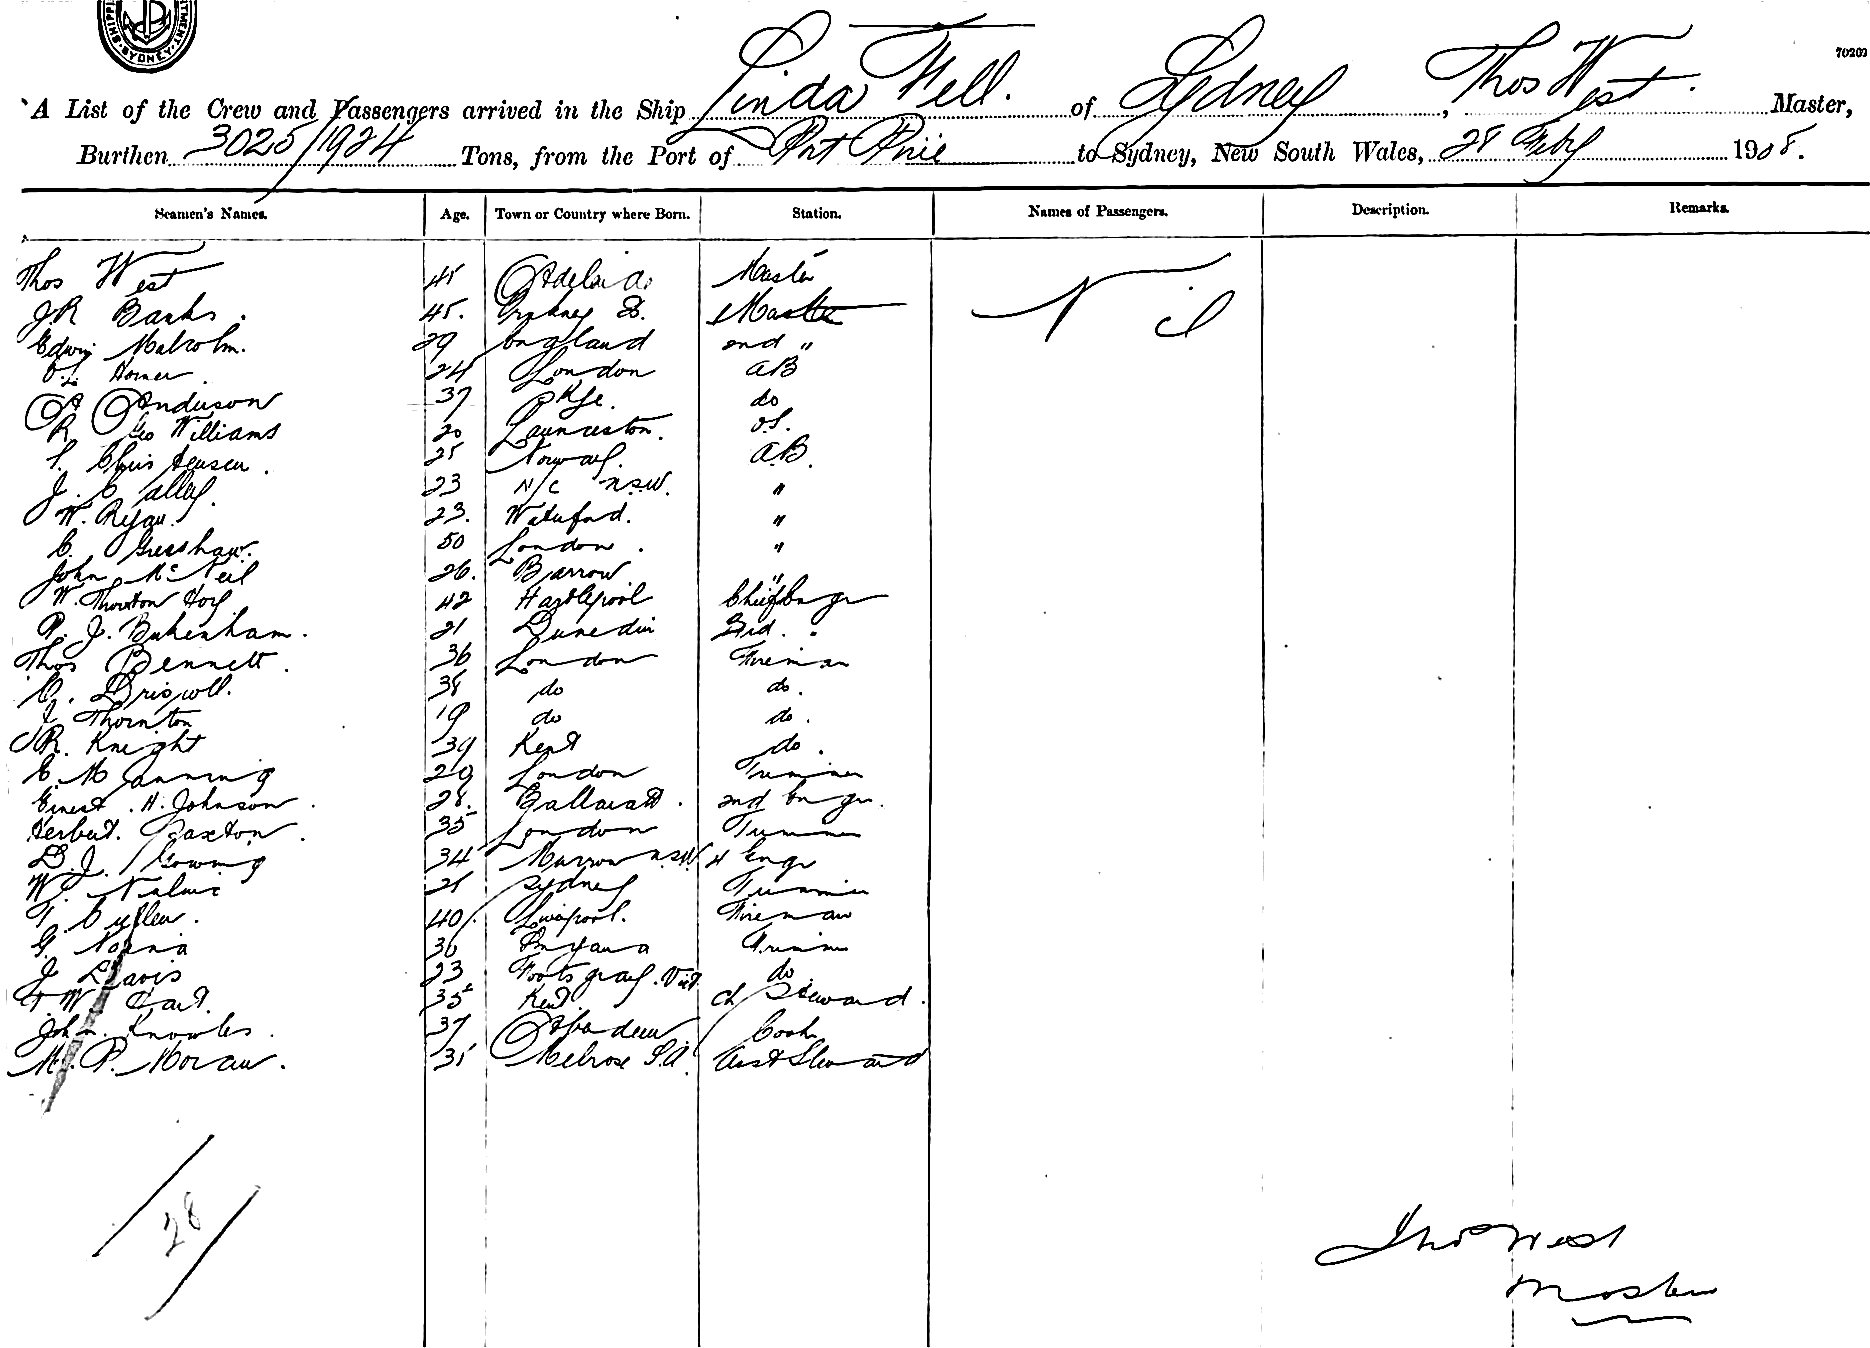 SHIPPING
SYDNEY
70203
A List of the Crew and Passengers arrived in the Ship Linda Fell. of Sydney, Thos West. Master,
Burthen 3025/1924 Tons, from the Port of Port Pirie to Sydney, New South Wales, 28 Feby 1908.
Seamen's Names. Age. Town or Country where Born. Station. Names of Passengers. Description. Remarks.
Thos West 45 Adelaide Master Nil
J R Banks. 45. Orkney Is. Mate
Edwin Malcolm. 29 England 2nd "
Horner. 24 London AB
A Anderson 37 do
R Geo Williams 20 Launceston. O.S.
Christensen. 25 Norway. AB.
J. Calley. 23 N/C N.S.W. "
W. Ryan. 23. Waterford. "
C. Greeshaw. 50 London. "
John McNeil 26. Barrow. "
W. Thornton Hoy 42 Hartlepool Chief Engr
P. J. Bukenham. 21 Dunedin 3rd. "
Thos Bennett. 36 London Fireman
Driscoll. 38 do do.
J. Thornton 19 do do.
R. Knight 39 Kent do.
C. Manning 29 London Trimmer
Ernest. H. Johnson. 28. Ballarat. 2nd Engr.
Herbert. Saxton. 35 London Trimmer
D. J. Gowing 34 N.S.W. 4 Engr
W. 21 Sydney Trimmer
T. Cullen. 40 Liverpool. Fireman
G. 30 Trimmer
J. Davis 23 Footscray. Vict. do
W. Hart. 35 Kent. ch Steward.
John. Knowles. 37 Aberdeen Cook
M. P. Moran. 31 Melrose S.A. Asst Steward
28
Thos West
Master